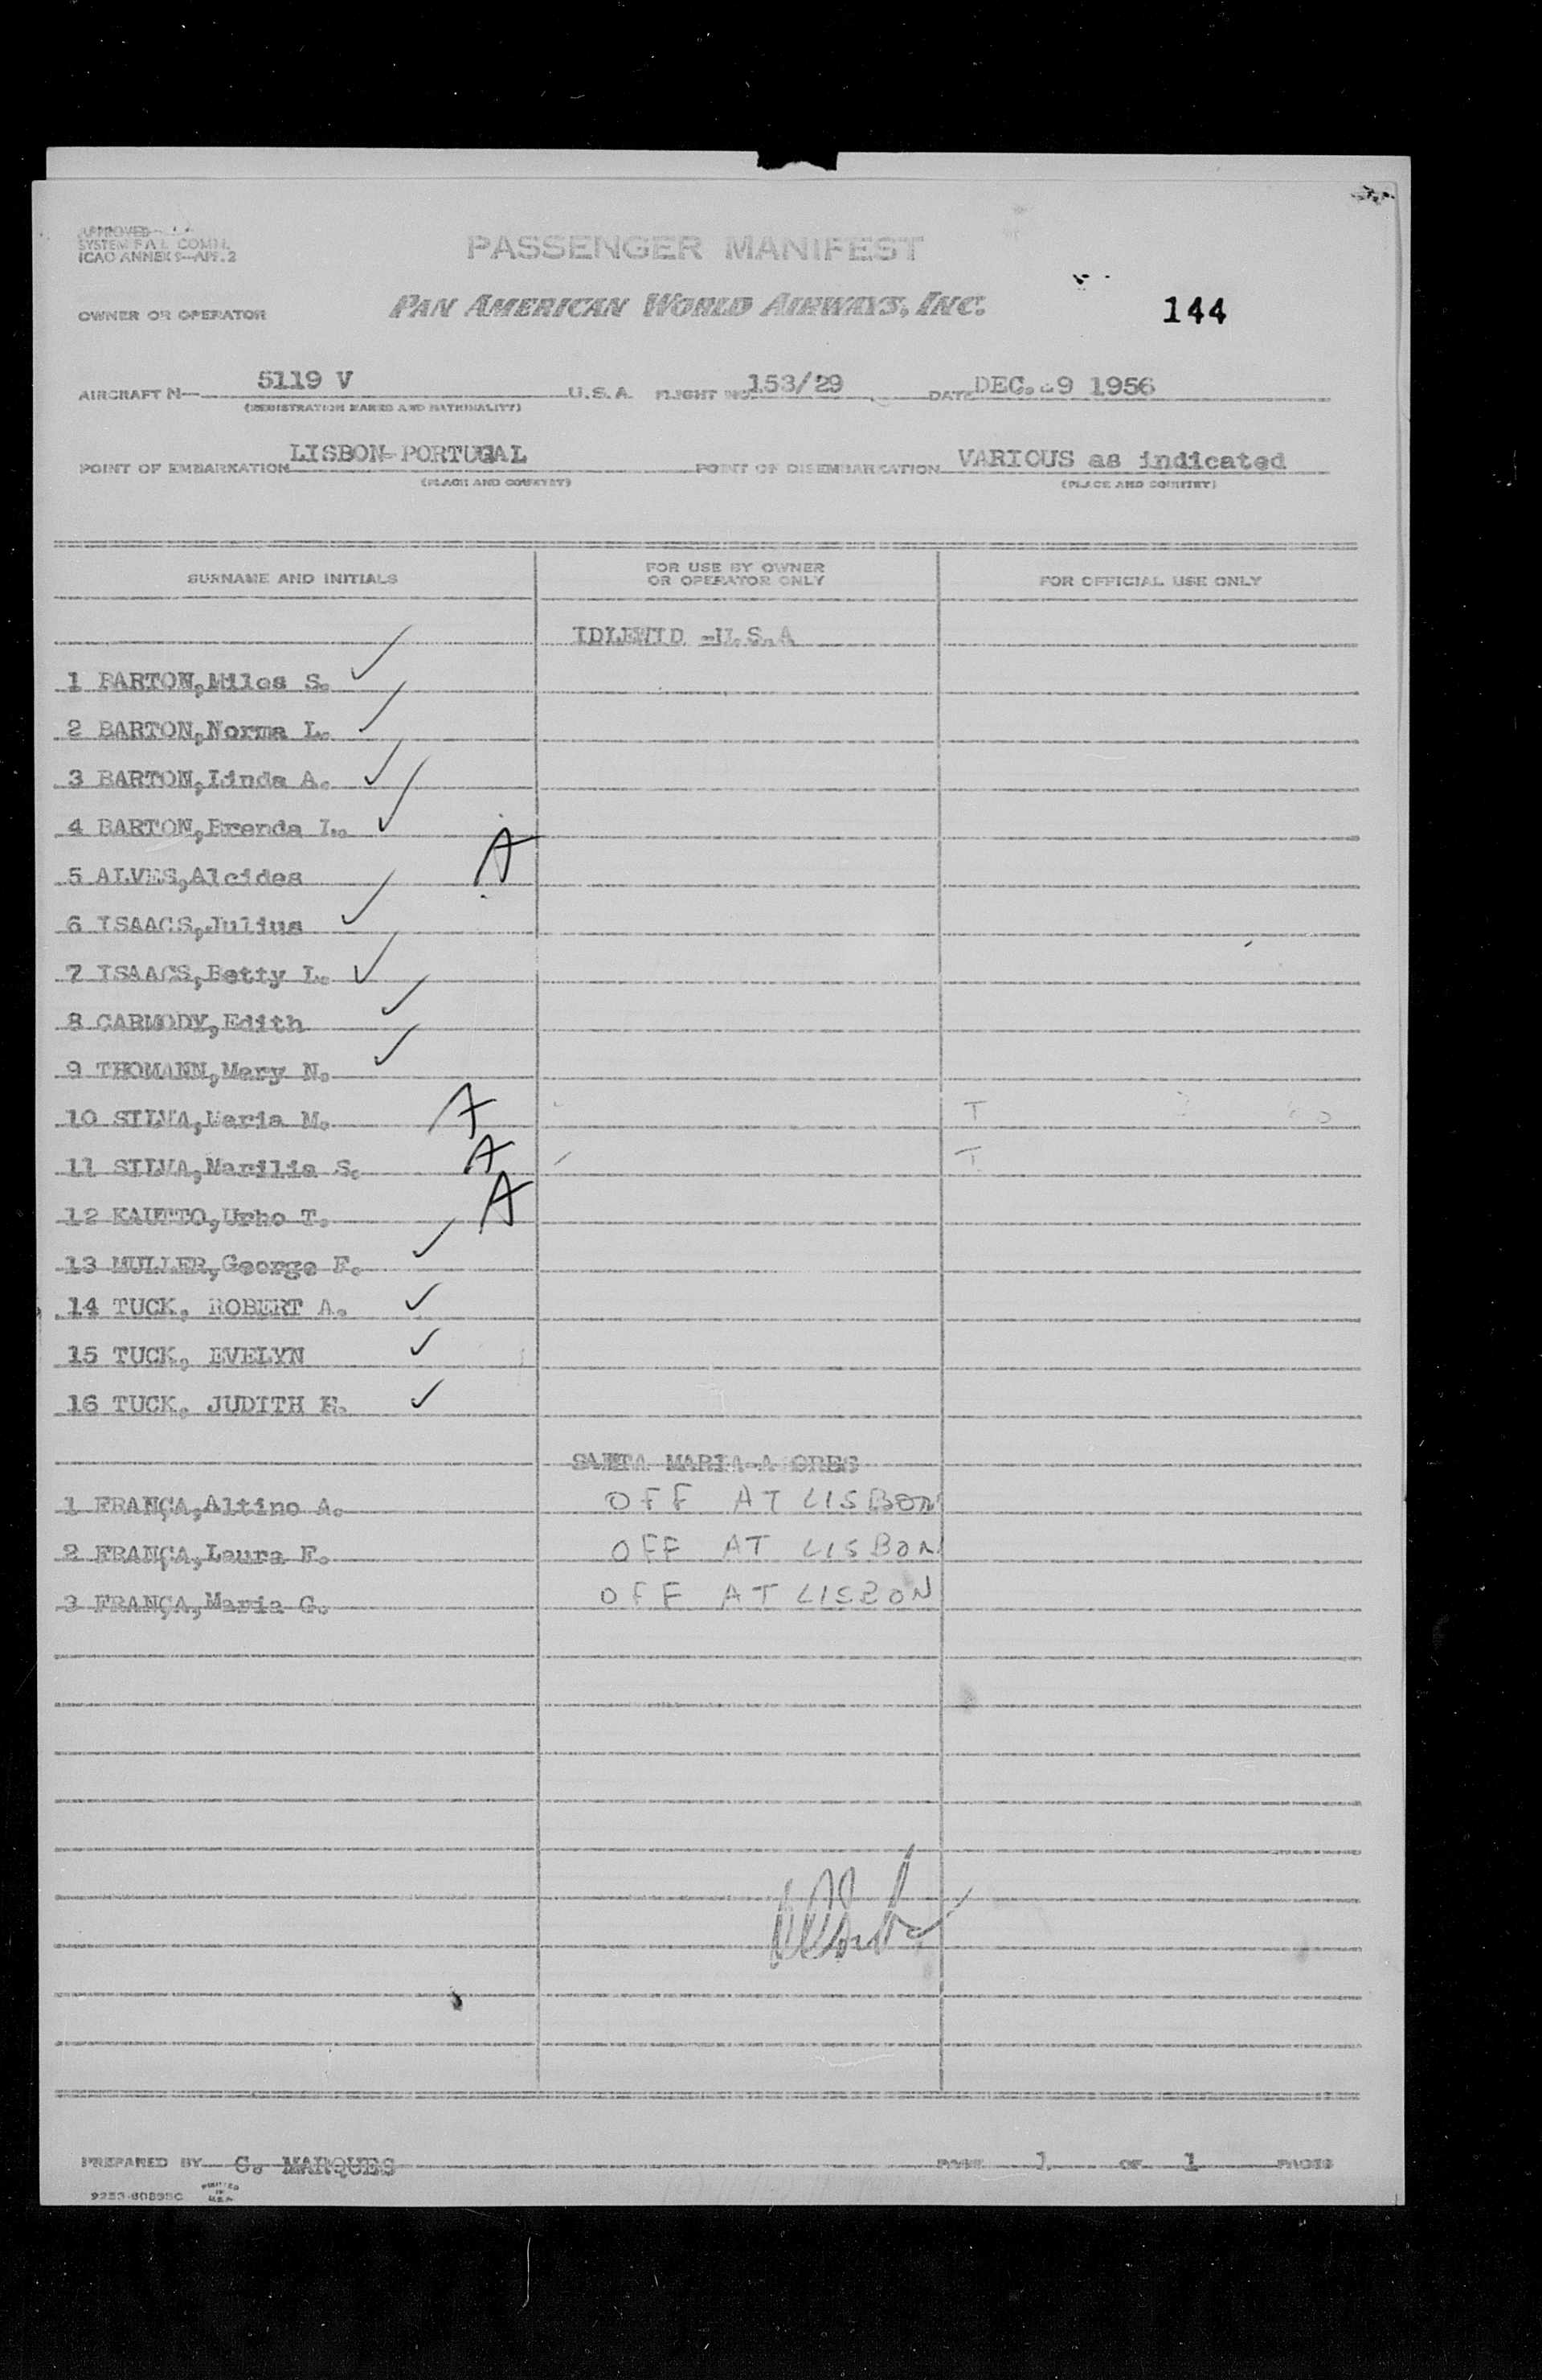 APPROVED
SYSTEM F A L COMM.
ICAO ANNEX 9—APP. 2
PASSENGER MANIFEST
OWNER OR OPERATOR PAN AMERICAN WORLD AIRWAYS, INC.
144
AIRCRAFT N— 5119 V U.S.A. FLIGHT NO. 153/29 DATE DEC. 29 1956
(REGISTRATION MARKS AND NATIONALITY)
POINT OF EMBARKATION LISBON-PORTUGAL POINT OF DISEMBARKATION VARIOUS as indicated
(PLACE AND COUNTRY) (PLACE AND COUNTRY)
SURNAME AND INITIALS FOR USE BY OWNER OR OPERATOR ONLY FOR OFFICIAL USE ONLY
IDLEWID -U.S.A
1 BARTON,Miles S. ✓
2 BARTON,Norma L. ✓
3 BARTON,Linda A. ✓
4 BARTON,Brenda L. ✓
5 ALVES,Alcides A
6 ISAACS,Julius ✓
7 ISAACS,Betty L. ✓
8 CARMODY,Edith ✓
9 THOMANN,Mary N. ✓
10 SILVA,Maria M. A T
11 SILVA,Marilia S. A T
12 KAUTTO,Urho T. A
13 MULLER,George F. ✓
14 TUCK, ROBERT A. ✓
15 TUCK, EVELYN ✓
16 TUCK, JUDITH E. ✓
SANTA MARIA-A ORES
1 FRANÇA,Altino A. OFF AT LISBON
2 FRANÇA,Laura F. OFF AT LISBON
3 FRANÇA,Maria G. OFF AT LISBON
PREPARED BY G. MARQUES PAGE 1 OF 1 PAGES
PRINTED IN U.S.A.